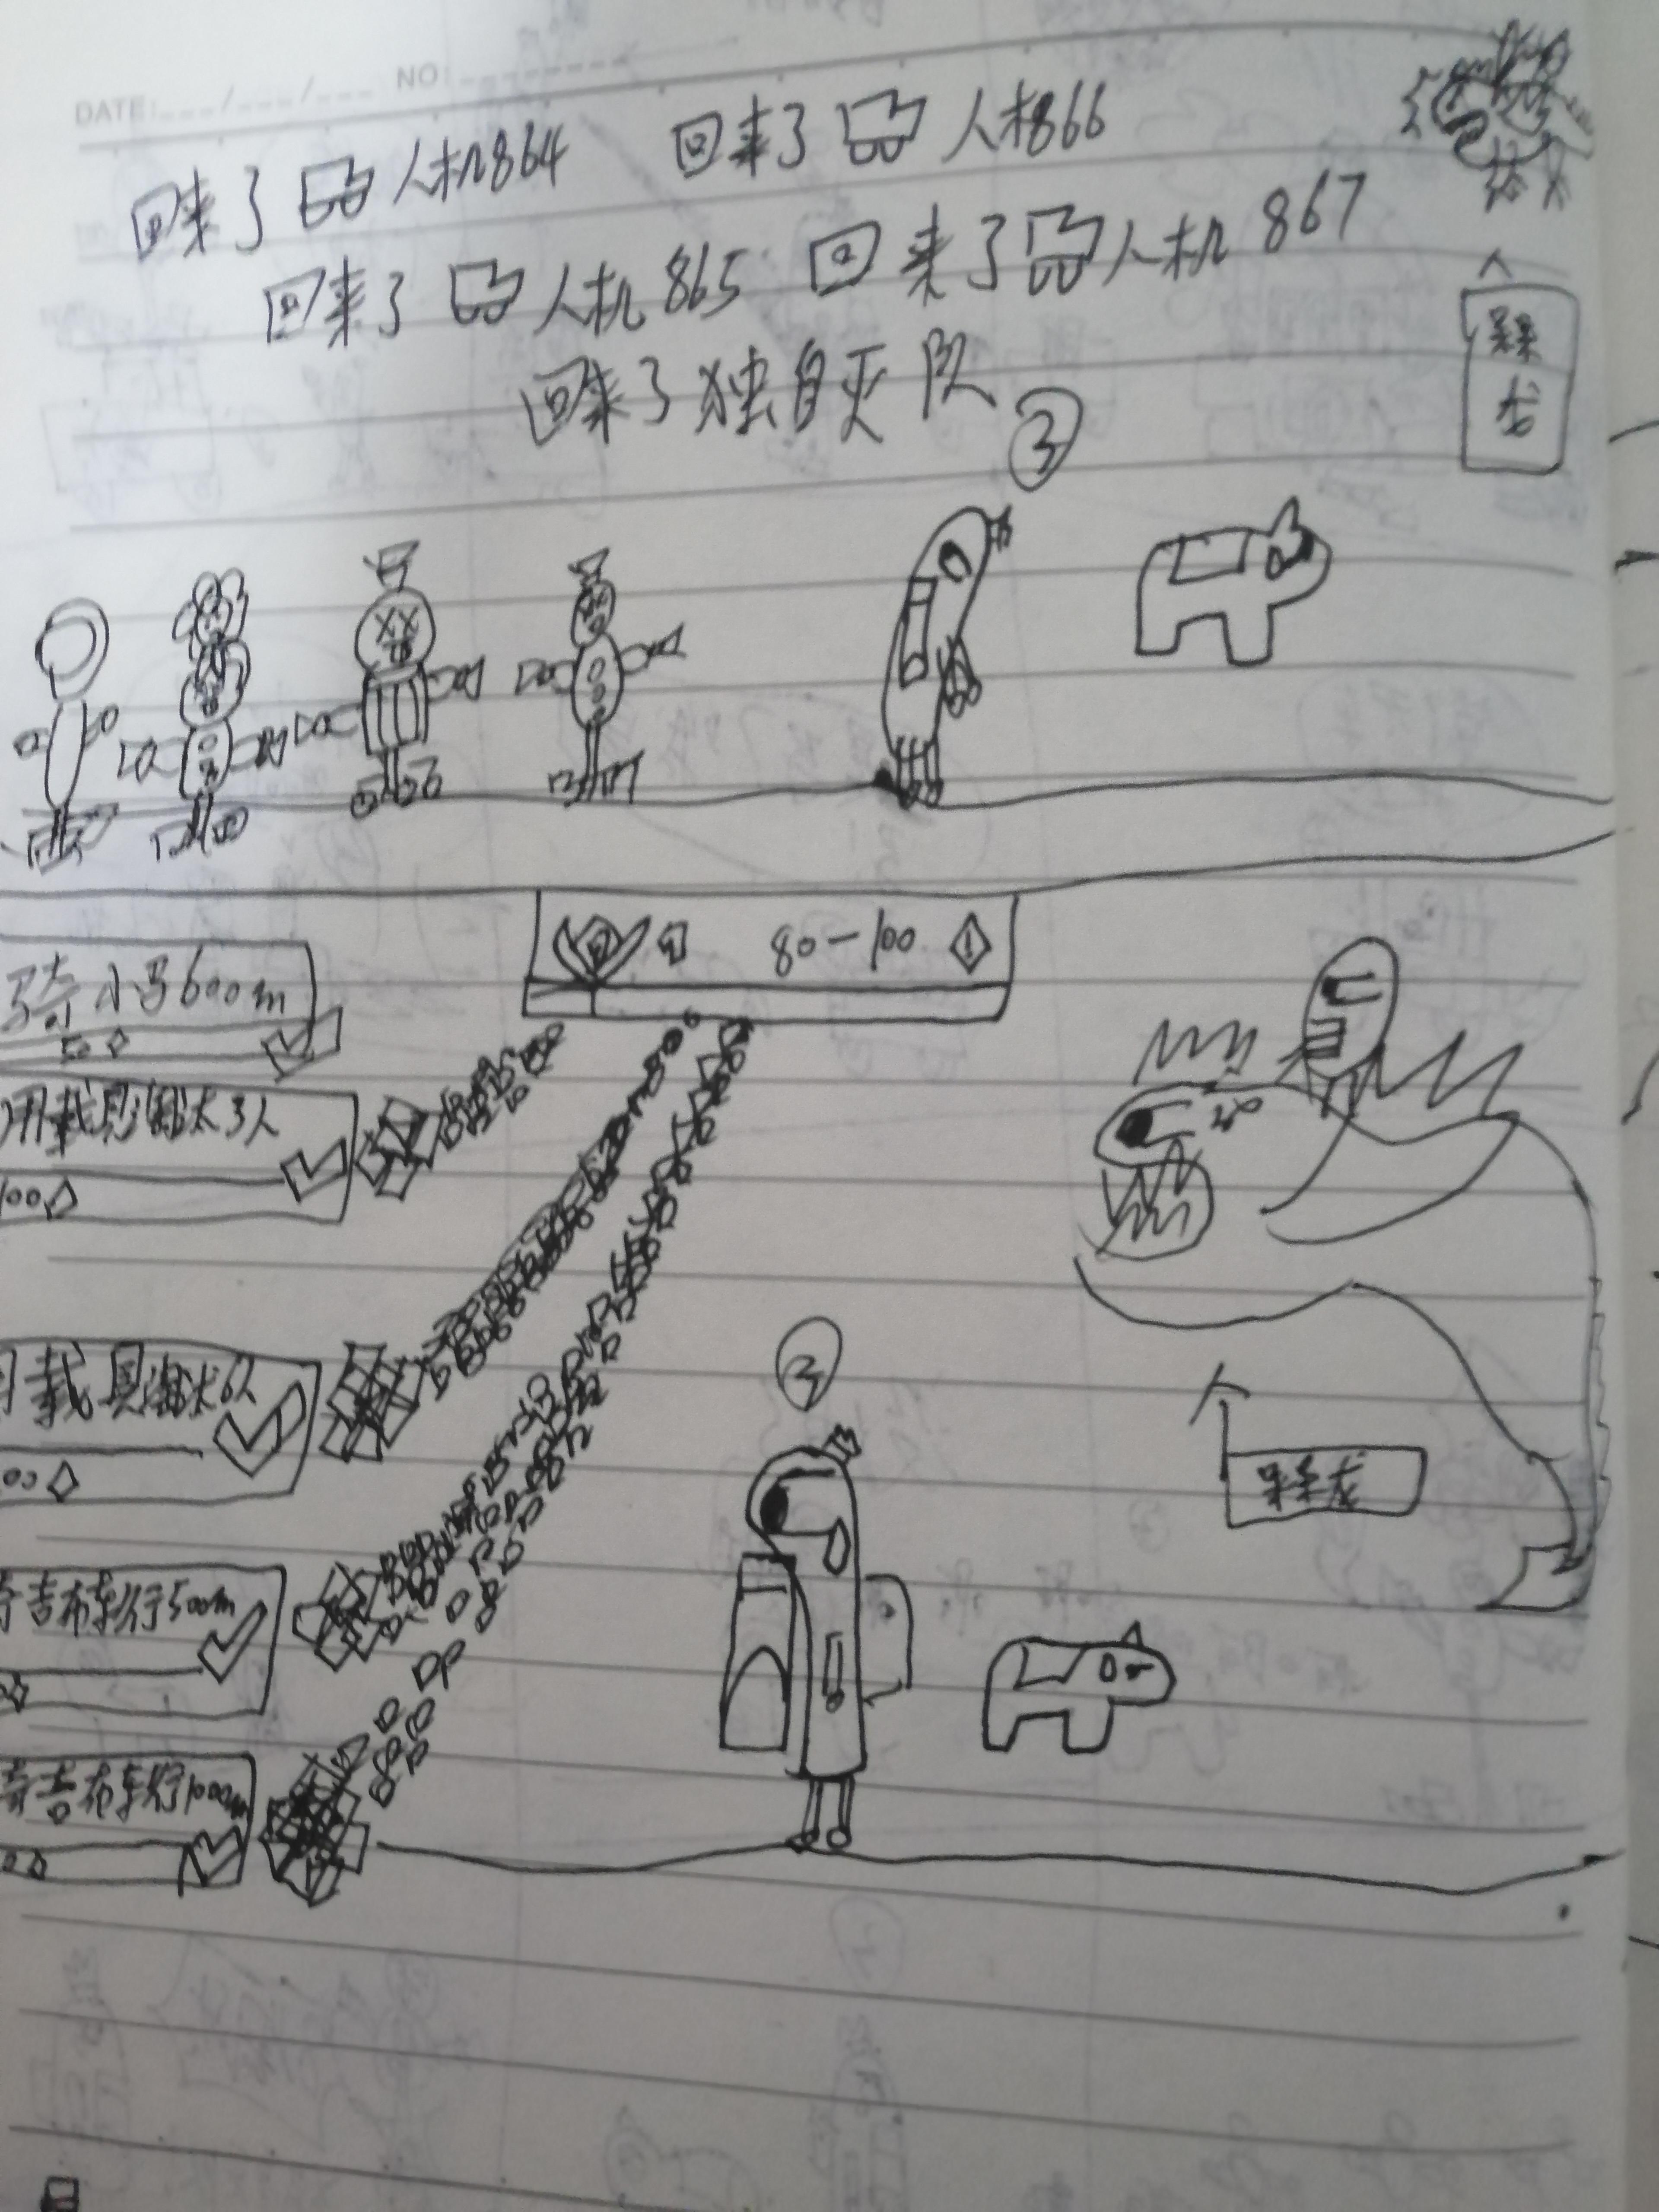 DATE:___/___/___ NO:
回来了 人机864 回来了 人机866
回来了 人机865 回来了 人机 867
回来了独自灭队
③
呆呆
龙
骑小马600m
80-100
用载具淘汰3人
100
载具淘汰6人
00
奇吉布车行500m
奇吉布车行1000m
③
呆呆龙